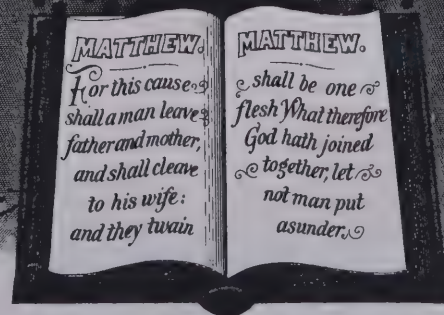 MATTHEW.
For this cause
shall a man leave
father and mother,
and shall cleave
to his wife:
and they twain
MATTHEW.
shall be one
flesh What therefore
God hath joined
together, let
not man put
asunder.